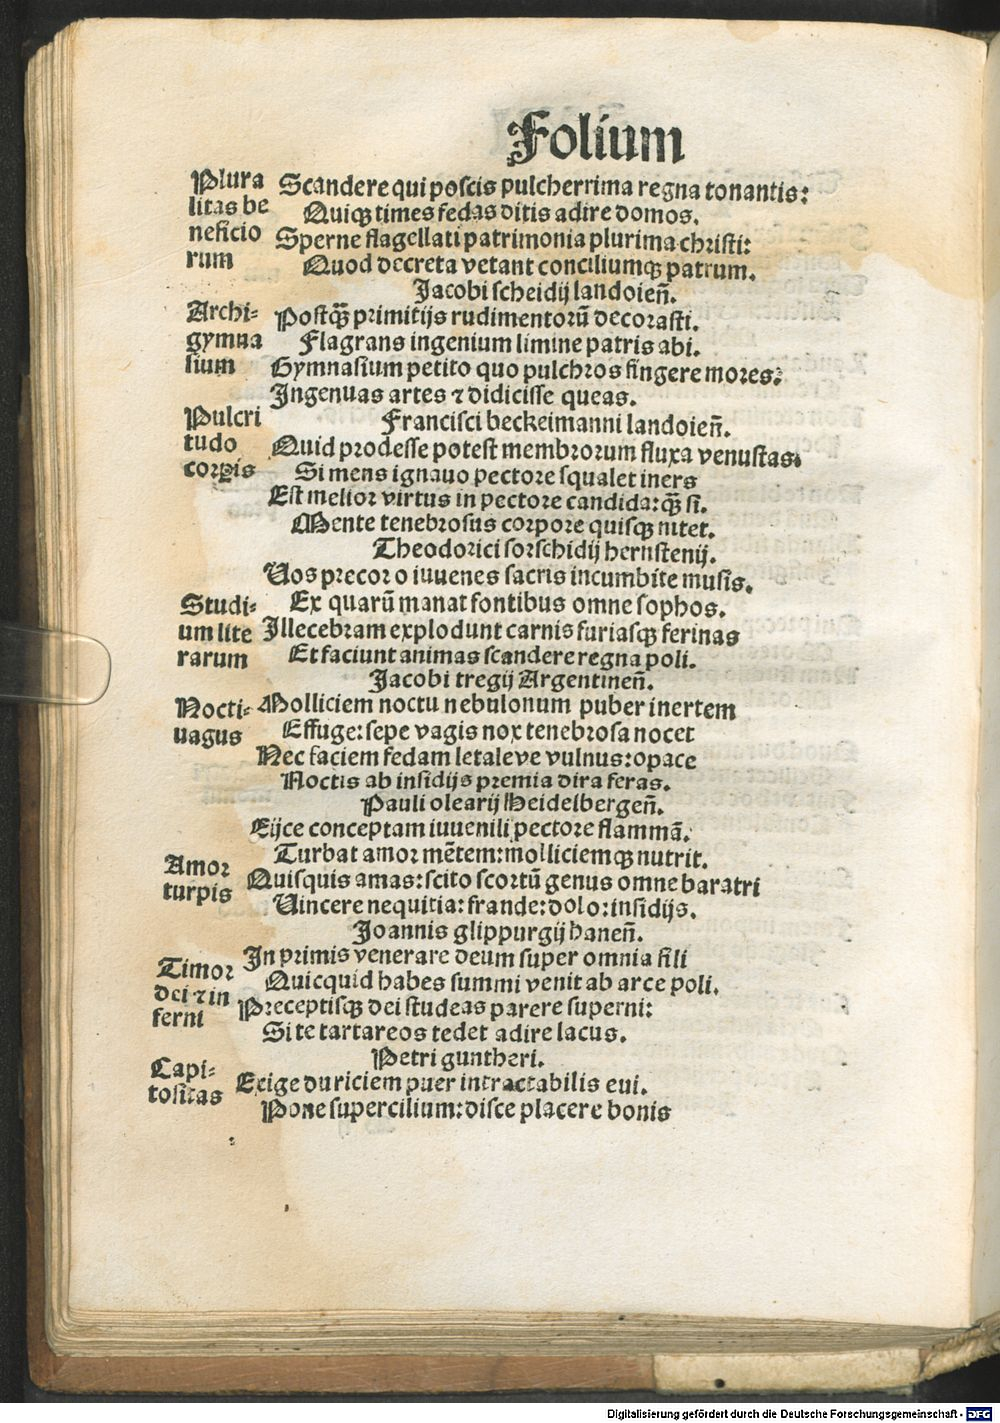 Folium
Plura
litas be
neficio
rum
Scandere qui poscis pulcherrima regna tonantis:
Quiqꝫ times fedas ditis adire domos.
Sperne flagellati patrimonia plurima christi:
Quod decreta vetant conciliumqꝫ patrum.
Jacobi scheidij landoieñ.
Archi-
gymna
sium
Postqꝫ̃ primitijs rudimentorũ decorasti.
Flagrans ingenium limine patris abi.
Gymnasium petito quo pulchros fingere mores:
Ingenuas artes ⁊ didicisse queas.
Francisci beckeimanni landoieñ.
Pulcri
tudo
corꝑis
Quid prodesse potest membrorum fluxa venustas.
Si mens ignauo pectore squalet iners
Est melior virtus in pectore candida: qꝫ̃ si.
Mente tenebrosus corpore quisqꝫ nitet.
Theodorici sorschidij hernstenij.
Uos precor o iuuenes sacris incumbite musis.
Studi-
um lite
rarum
Ex quarũ manat fontibus omne sophos.
Illecebram explodunt carnis furiasqꝫ ferinas
Et faciunt animas scandere regna poli.
Jacobi tregij Argentineñ.
Nocti-
uagus
Molliciem noctu nebulonum puber inertem
Effuge: sepe vagis nox tenebrosa nocet
Nec faciem fedam letaleve vulnus: opace
Noctis ab insidijs premia dira feras.
Pauli olearij Heidelbergeñ.
Eijce conceptam iuuenili pectore flammã.
Turbat amor mẽtem: molliciemqꝫ nutrit.
Amor
turpis
Quisquis amas: scito scortũ genus omne baratri
Uincere nequitia: frande: dolo: insidijs.
Joannis glippurgij haneñ.
Timor
dei ⁊ in
ferni
In primis venerare deum super omnia fili
Quicquid habes summi venit ab arce poli.
Preceptisqꝫ dei studeas parere superni:
Si te tartareos tedet adire lacus.
Petri guntheri.
Capi-
tositas
Exige duriciem puer intractabilis eui.
Pone supercilium: disce placere bonis
Digitalisierung gefördert durch die Deutsche Forschungsgemeinschaft - DFG